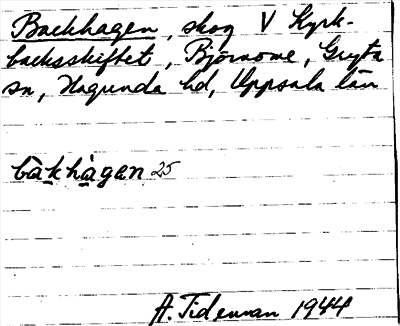 Backhagen, skog V Kyrk-
backsskiftet, Björnome, Gryta
sn, Hagunda hd, Uppsala län
bàkhàgan 25
A. Tideman 1944